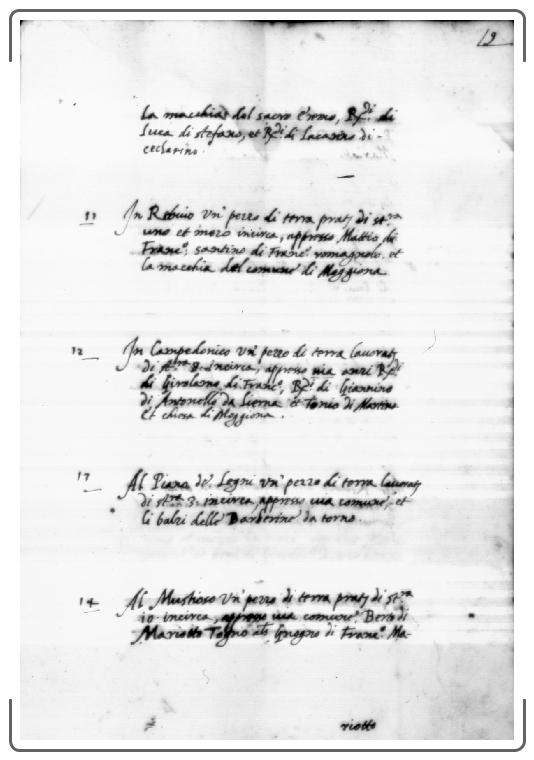 19
La macchia del sacro Eremo, Rdi di
Luca di stefano, et Rdi di Lazarino di
ceccarino.
11 In Rebuio Un' pezzo di terra prat: di stra
uno et mezo incirca, appresso Mattio di
Franco, santino di Franco romagnolo. et
la macchia del comune di Moggiona
12 In Campedonico un' pezzo di terra lavorat:
di stra 8. incirca, appresso uia anzi Rdi
di Girolamo di Franco, Rdi di Giannino
di Antonello da Lierna et Tonio di Martino
Et chiesa di Moggiona.
13 Al Piano de' Legni un' pezzo di terra lavorat:
di stra 3. incirca appresso uia comune, et
li balzi delle Barberine da torno.
14 Al Mustioso Un' pezzo di terra prat: di stra
10 incirca, appresso uia comune. Berto di
Mariotto Togno als Grogno di Franco Ma-
riotto